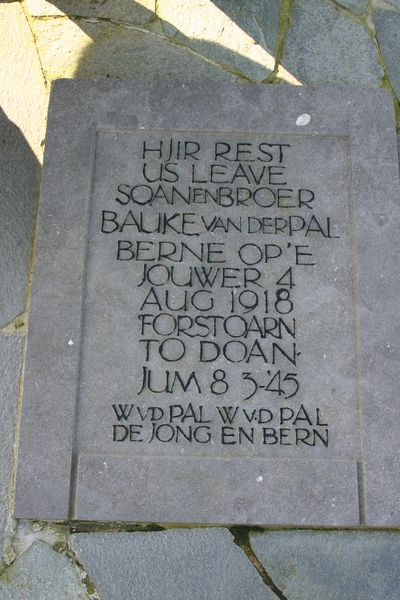 HJIR REST
US LEAVE
SOAN EN BROER
BAUKE VAN DER PAL
BERNE OP 'E
JOUWER 4
AUG 1918
FORSTOARN
TO DOAN-
JUM 8 3-'45
W.V.D PAL W.V.D PAL
DE JONG EN BERN